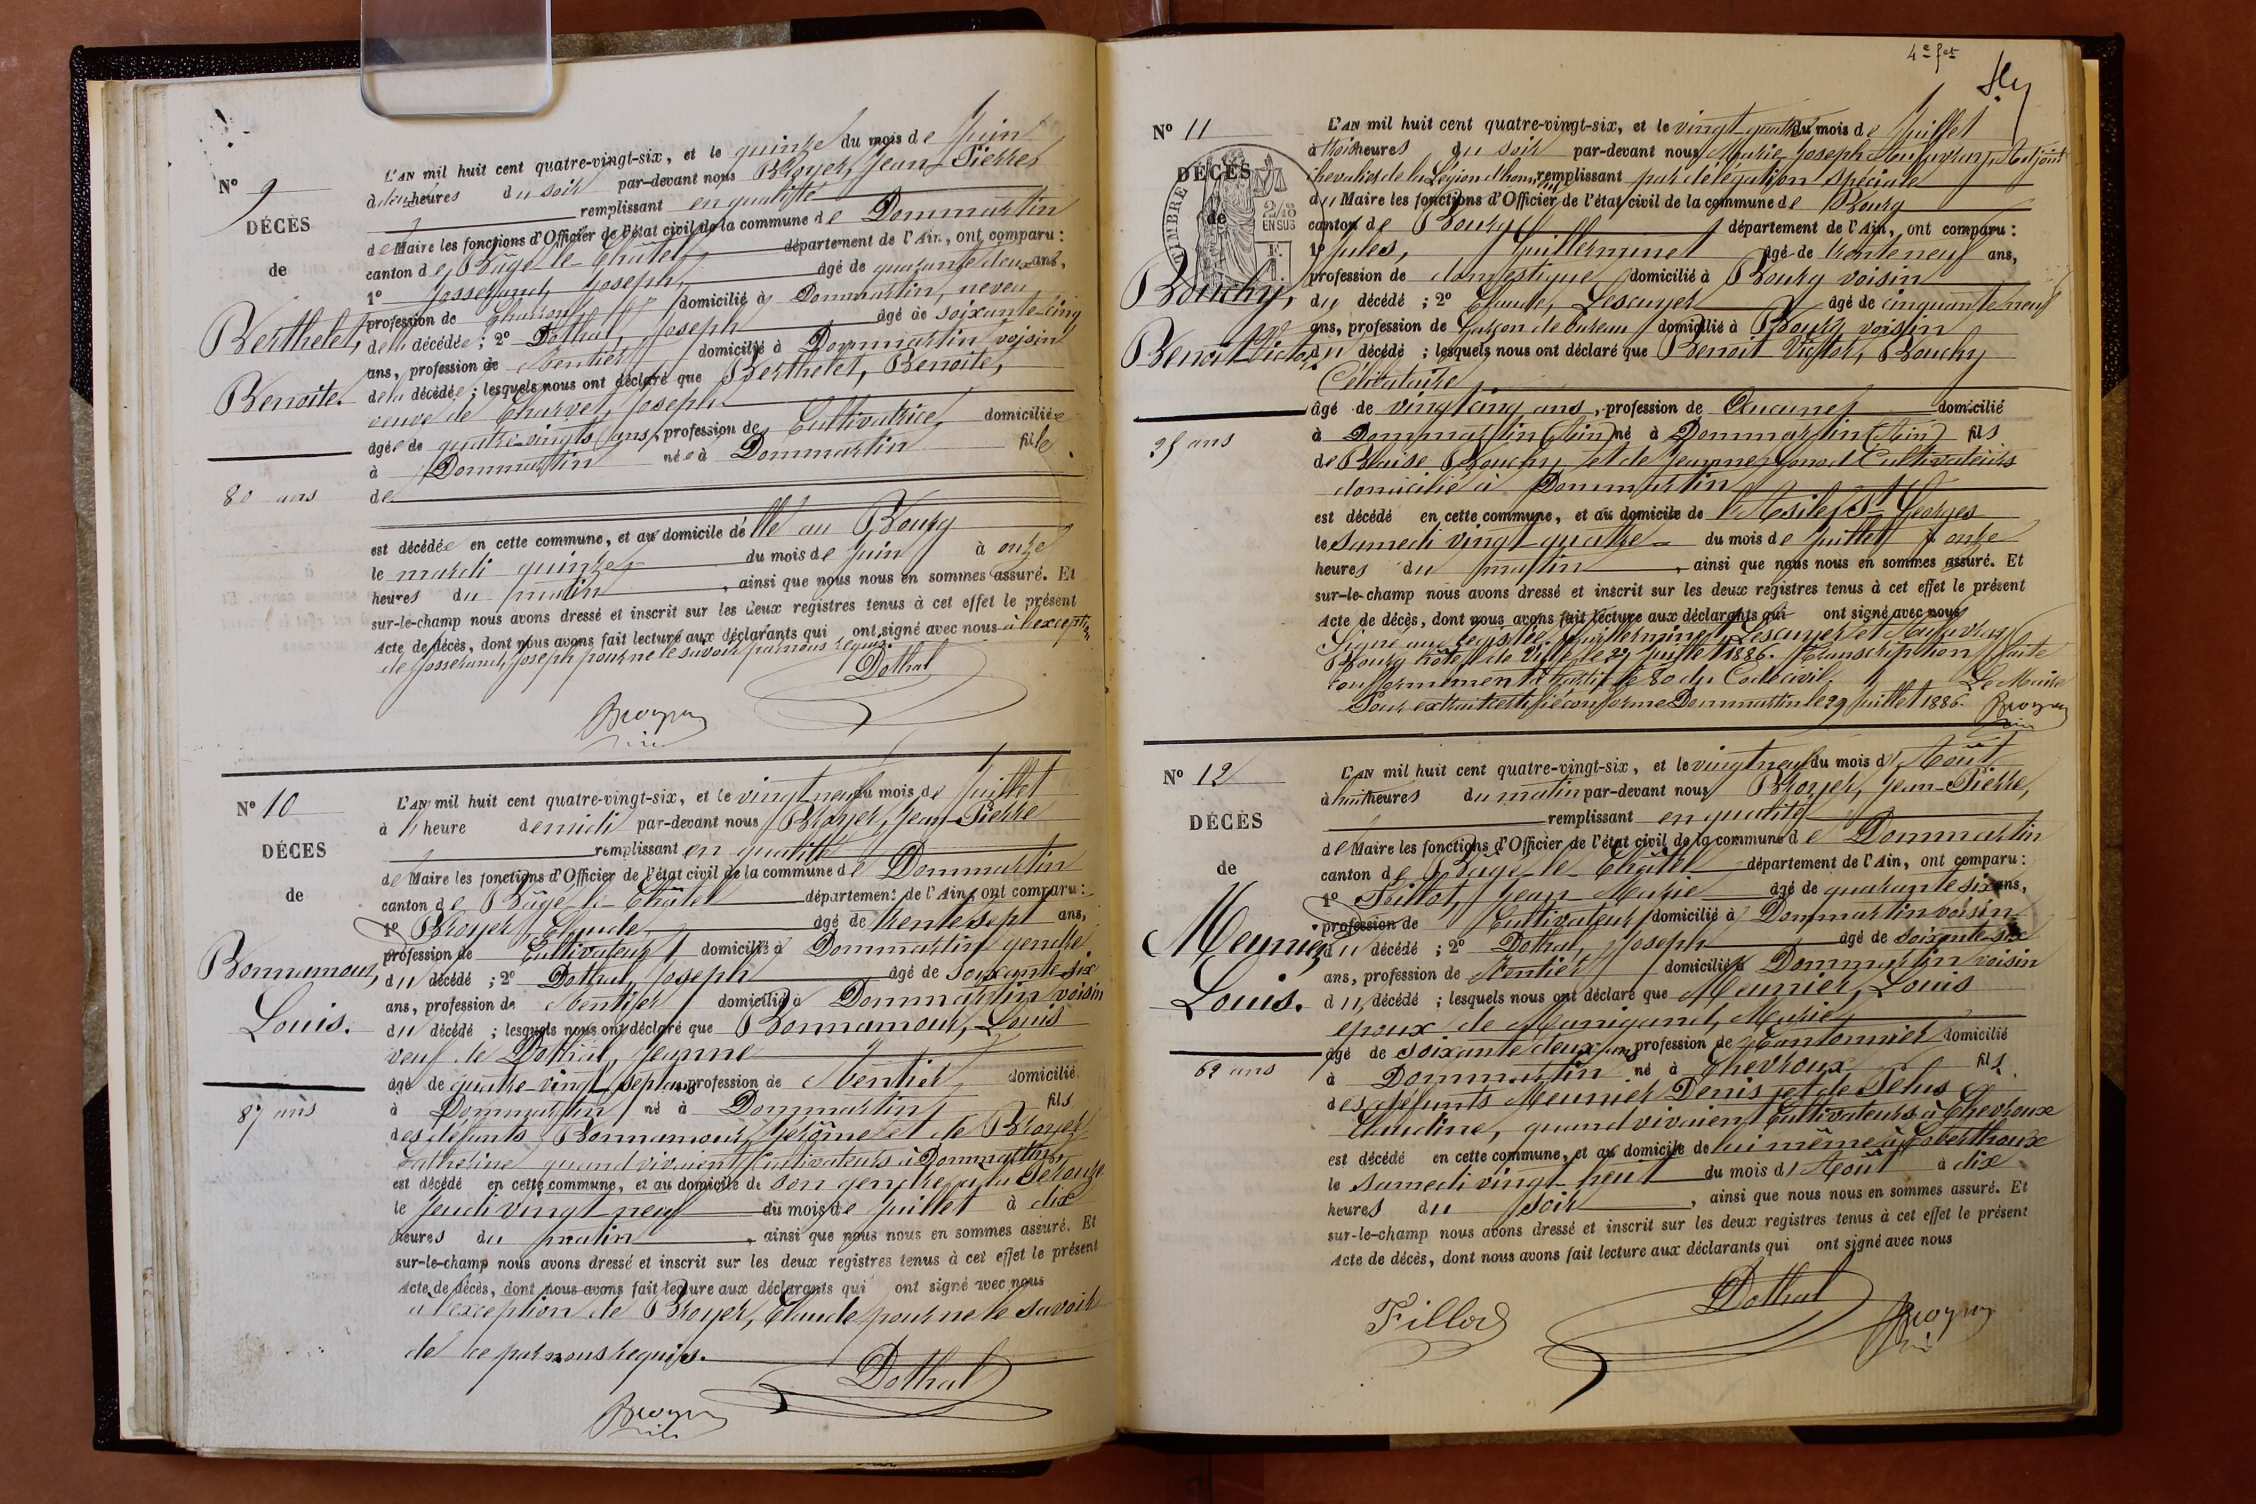 N° 9
DÉCÈS
de
Berthelet,
Benoite.
80 ans
L'AN mil huit cent quatre-vingt-six, et le quinze du mois de Juin
à deux heures du soir par-devant nous Broyer, Jean-Pierre
remplissant en qualité
de Maire les fonctions d'Officier de l'état civil de la commune de Dommartin
canton de Bâgé-le-Châtel département de l'Ain, ont comparu :
1° Josserand, Joseph, âgé de quarante deux ans,
profession de Charron domicilié à Dommartin, neveu
de la décédée ; 2° Dothal, Joseph âgé de soixante-cinq
ans, profession de Rentier domicilié à Dommartin voisin
de la décédée ; lesquels nous ont déclaré que Berthelet, Benoite,
veuve de Charvet, Joseph
âgée de quatre-vingts ans, profession de Cultivatrice, domiciliée
à Dommartin née à Dommartin fille
de
est décédée en cette commune, et au domicile d'elle au Bourg
le mardi quinze du mois de Juin à onze
heures du matin, ainsi que nous nous en sommes assuré. Et
sur-le-champ nous avons dressé et inscrit sur les deux registres tenus à cet effet le présent
Acte de décès, dont nous avons fait lecture aux déclarants qui ont signé avec nous à l'exception
de Josserand, Joseph pour ne le savoir par nous requis.
Dothal
Broyer
N° 10
DÉCES
de
Bonnamour,
Louis.
87 ans
L'AN mil huit cent quatre-vingt-six, et le vingt neuf du mois de Juillet
à heure de midi par-devant nous Broyer, Jean-Pierre
remplissant en qualité
de Maire les fonctions d'Officier de l'état civil de la commune de Dommartin
canton de Bâgé-le-Châtel département de l'Ain, ont comparu :
1° Broyer, Claude âgé de trente sept ans,
profession de Cultivateur domicilié à Dommartin gendre
du décédé ; 2° Dothal, Joseph âgé de soixante-six
ans, profession de Rentier domicilié à Dommartin voisin
du décédé ; lesquels nous ont déclaré que Bonnamour, Louis
veuf de Dothal, Jeanne
âgé de quatre-vingt sept ans profession de Rentier domicilié
à Dommartin né à Dommartin fils
des défunts Bonnamour, Jérôme et de Broyer
Catherine quand vivaient Cultivateurs à Dommartin,
est décédé en cette commune, et au domicile de son gendre
le Jeudi vingt neuf du mois de Juillet à dix
heures du matin, ainsi que nous nous en sommes assuré. Et
sur-le-champ nous avons dressé et inscrit sur les deux registres tenus à cet effet le présent
Acte de décès, dont nous avons fait lecture aux déclarants qui ont signé avec nous
à l'exception de Broyer, Claude pour ne le savoir
de ce par nous requis.
Dothal
Broyer
4e fet
N° 11
DÉCÈS
de
TIMBRE
2/10
EN SUS
Bouchy,
Benoit Victor.
25 ans
L'AN mil huit cent quatre-vingt-six, et le vingt quatre du mois de Juillet
à trois heures du soir par-devant nous Marie Joseph Adjoint
Chevalier de la Légion d'honneur remplissant par délégation spéciale
du Maire les fonctions d'Officier de l'état civil de la commune de Bourg
canton de Bourg département de l'Ain, ont comparu :
1° Jules, Guillerminet âgé de trente neuf ans,
profession de domestique domicilié à Bourg voisin
du décédé ; 2° Claude, Lescuyer âgé de cinquante neuf
ans, profession de Garçon de bureau domicilié à Bourg voisin
du décédé ; lesquels nous ont déclaré que Benoit Victor, Bouchy
Célibataire
âgé de vingt cinq ans, profession de Aucune domicilié
à Dommartin (Ain) né à Dommartin (Ain) fils
de Blaise Bouchy et de Jeanne Gonod Cultivateurs
domicilié à Dommartin
est décédé en cette commune, et au domicile de l'Asile St Georges
le samedi vingt-quatre du mois de Juillet à onze
heures du matin, ainsi que nous nous en sommes assuré. Et
sur-le-champ nous avons dressé et inscrit sur les deux registres tenus à cet effet le présent
Acte de décès, dont nous avons fait lecture aux déclarants qui ont signé avec nous
Signé au registre Guillerminet, Lescuyer et
Bourg hôtel de Ville le 27 Juillet 1886. Transcription faite
conformément à l'article 80 du Code civil. Le Maire
Pour extrait certifié conforme Dommartin le 29 Juillet 1886. Broyer
N° 12
DÉCÈS
de
Meunier
Louis.
62 ans
L'AN mil huit cent quatre-vingt-six, et le vingt neuf du mois d'Août
à huit heures du matin par-devant nous Broyer, Jean-Pierre,
remplissant en qualité
de Maire les fonctions d'Officier de l'état civil de la commune de Dommartin
canton de Bâgé-le-Châtel département de l'Ain, ont comparu :
1° Fillot, Jean-Marie âgé de quarante six ans,
profession de Cultivateur domicilié à Dommartin voisin
du décédé ; 2° Dothal, Joseph âgé de soixante-six
ans, profession de Rentier domicilié à Dommartin voisin
du décédé ; lesquels nous ont déclaré que Meunier, Louis
époux de Manigand, Marie
âgé de soixante deux ans profession de Cantonnier domicilié
à Dommartin né à Chevroux fils
des défunts Meunier Denis et de Pelus
Claudine, quand vivaient Cultivateurs à Chevroux
est décédé en cette commune, et au domicile de lui même à
le samedi vingt-huit du mois d'Août à dix
heures du soir, ainsi que nous nous en sommes assuré. Et
sur-le-champ nous avons dressé et inscrit sur les deux registres tenus à cet effet le présent
Acte de décès, dont nous avons fait lecture aux déclarants qui ont signé avec nous
Fillod
Dothal
Broyer